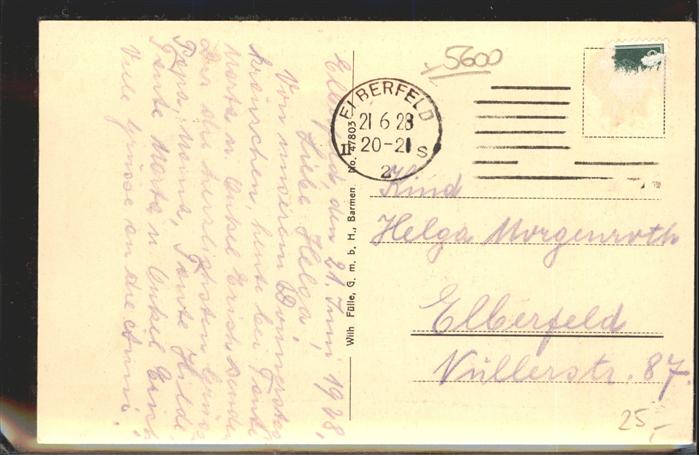 Elberfeld, den 21. Juni 1928,
Liebe Helga!
Von unserem Donnerstag
kränzchen, heute bei Tante
Marta u. Onkel Erich senden
Dir die herzlichsten Grüsse
Papa, Mama, Tante Hilde
Tante Marta u. Onkel Erich
Viele Grüsse an die Anni!
Wilh Fülle, G. m. b. H., Barmen No. 47803
5600
ELBERFELD
21 6 28
20-21
II S
2
Kind
Helga Morgenroth
Elberfeld
Nüllerstr. 87.
25,-